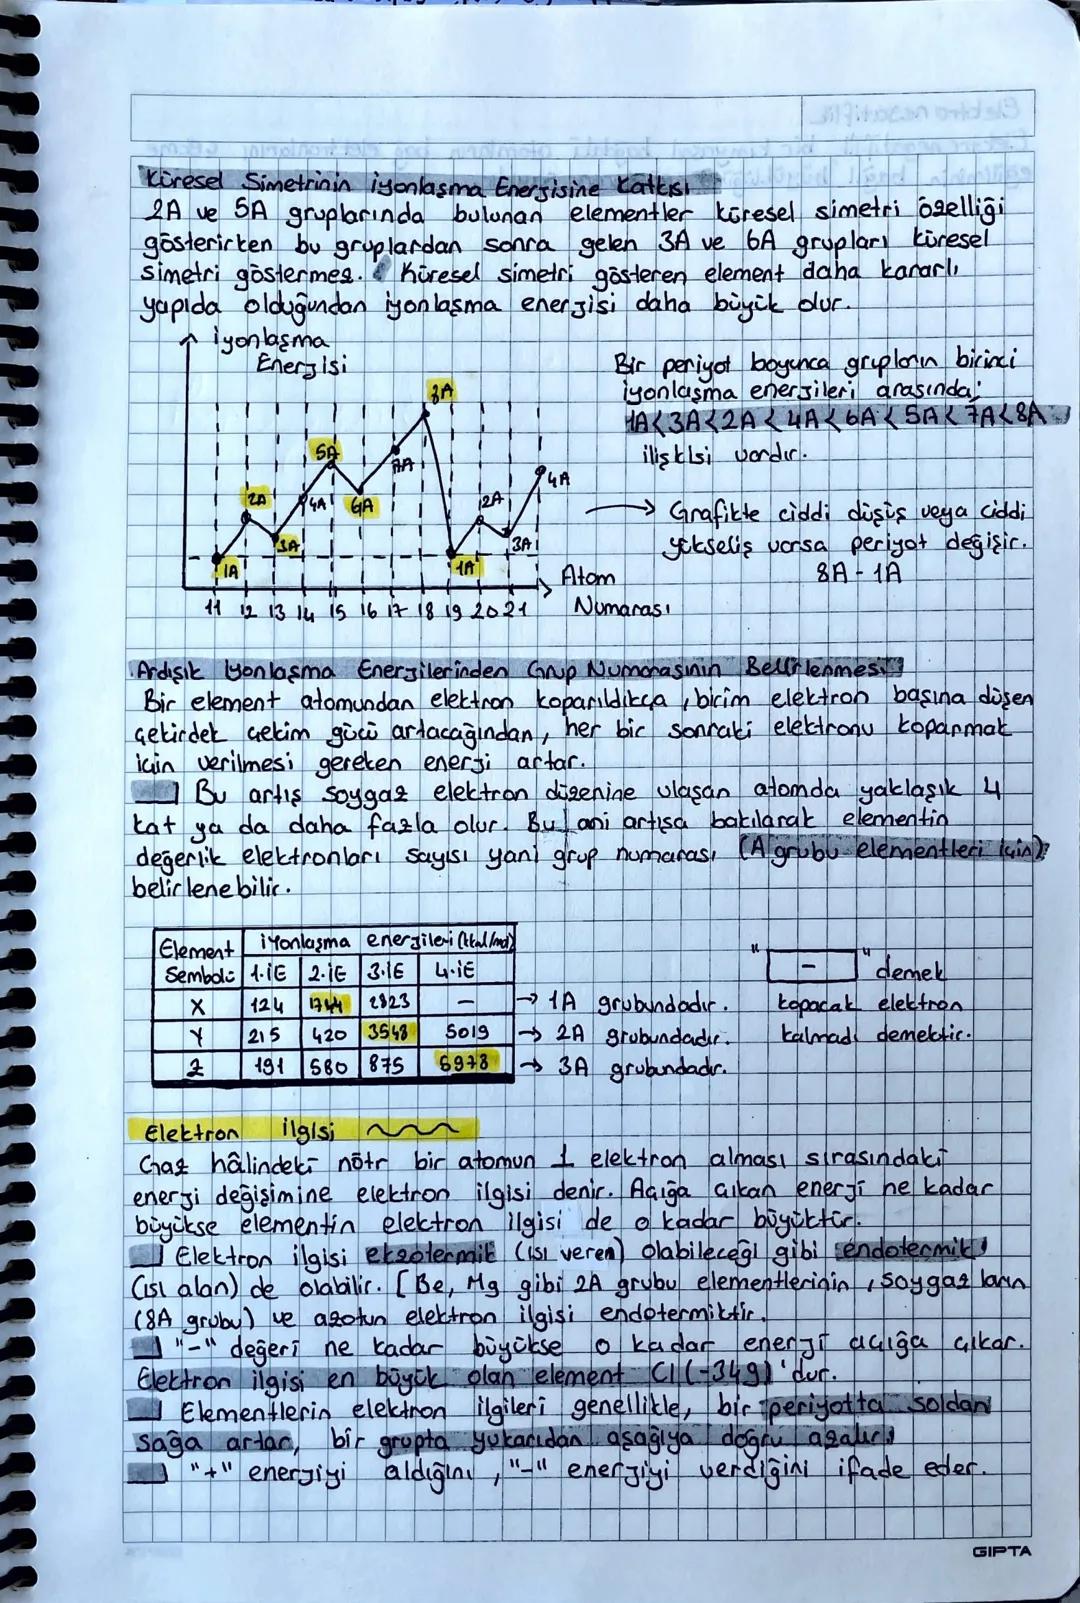 Küresel Simetrinin iyonlaşma Enerjisine Katkısı
2A ve 5A gruplarında bulunan elementler küresel simetri özelliği
gösterirken bu gruplardan sonra gelen 3A ve 6A grupları küresel
simetri göstermez. Küresel simetri gösteren element daha kararlı
yapıda olduğundan iyonlaşma enerjisi daha büyük olur.
iyonlaşma
Enerjisi
8A
5A
7A
2A
4A
6A
3A
1A
2A
4A
3A
1A
11 12 13 14 15 16 17 18 19 20 21
Atom
Numarası
Bir periyot boyunca grupların birinci
iyonlaşma enerjileri arasında;
1A<3A<2A<4A<6A<5A<7A<8A
ilişkisi vardır.
→ Grafikte ciddi düşüş veya ciddi
yükseliş varsa periyot değişir.
8A - 1A
Ardışık İyonlaşma Enerjilerinden Grup Numarasının Belirlenmesi
Bir element atomundan elektron koparıldıkça, birim elektron başına düşen
çekirdek çekim gücü artacağından, her bir sonraki elektronu kopanmak
için verilmesi gereken enerji artar.
Bu artış soygaz elektron düzenine ulaşan atomda yaklaşık 4
kat ya da daha fazla olur. Bu ani artışa bakılarak elementin
değerlik elektronları sayısı yani grup numarası (A grubu elementleri için)
belirlenebilir.
Element iyonlaşma enerjileri (kkal/mol)
Sembolü 1.İE 2.İE 3.İE 4.İE
X 124 1744 2823 – → 1A grubundadır.
Y 215 420 3548 5019 → 2A grubundadır.
Z 191 580 875 5978 → 3A grubundadır.
" – " demek
kopacak elektron
kalmadı demektir.
Elektron ilgisi
Gaz hâlindeki nötr bir atomun 1 elektron alması sırasındaki
enerji değişimine elektron ilgisi denir. Açığa çıkan enerji ne kadar
büyükse elementin elektron ilgisi de o kadar büyüktür.
Elektron ilgisi ekzotermik (ısı veren) olabileceği gibi endotermik
(ısı alan) de olabilir. [Be, Mg gibi 2A grubu elementlerinin, soygazların
(8A grubu) ve azotun elektron ilgisi endotermiktir.
"–" değeri ne kadar büyükse o kadar enerji açığa çıkar.
Elektron ilgisi en büyük olan element Cl (-349)'dur.
Elementlerin elektron ilgileri genellikle, bir periyotta soldan
sağa artar, bir grupta yukarıdan aşağıya doğru azalır.
"+" enerjiyi aldığını, "–" enerjiyi verdiğini ifade eder.
GIPTA